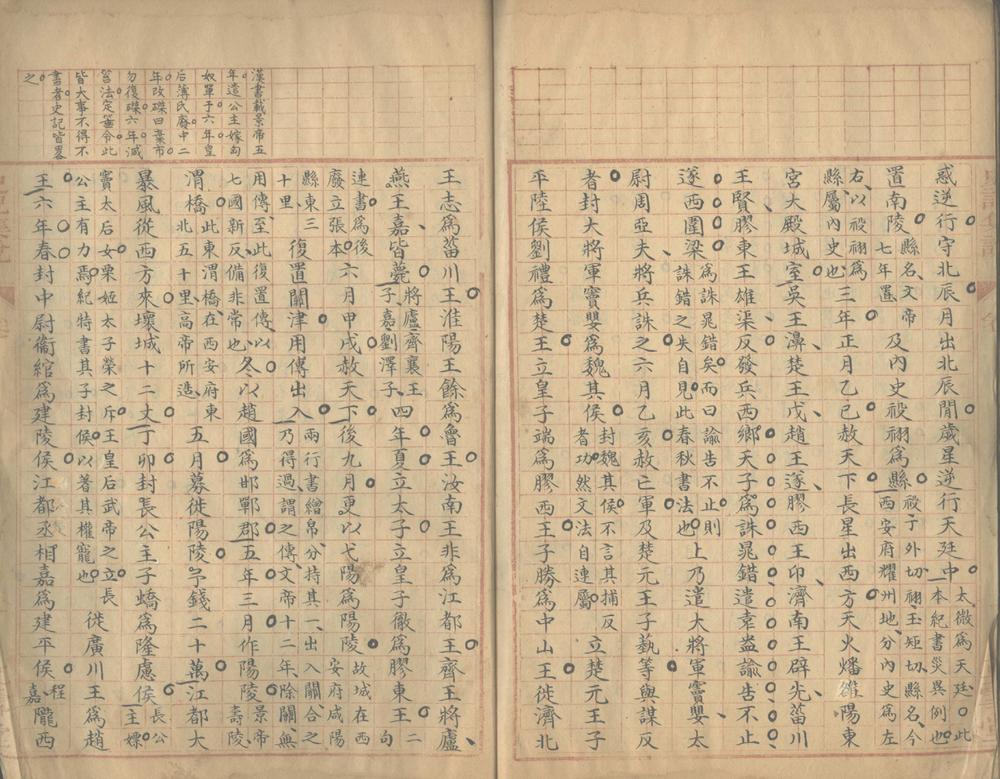 惑逆行守北辰月出北辰閒歲星逆行天廷中
太微為天廷此
本紀書災異例也
置南陵
縣名文帝
七年置
及內史祋祤為縣
祋丁外切祤玉短切縣名今
西安府耀州地分內史為左
右以祋祤為
縣屬內史也
三年正月乙巳赦天下長星出西方天火燔雒陽東
宮大殿城室吳王濞楚王戊趙王遂膠西王卬濟南王辟光菑川
王賢膠東王雄渠反發兵西鄉天子為誅晁錯遣袁盎諭告不止
遂西圍梁
為誅晁錯矣而曰諭告不止則
誅錯之失自見此春秋書法也
上乃遣大將軍竇嬰太
尉周亞夫將兵誅之六月乙亥赦亡軍及楚元王子蓺等與謀反
者封大將軍竇嬰為魏其侯
封魏其侯不言其捕反
者功然文法自連屬
立楚元王子
平陸侯劉禮為楚王立皇子端為膠西王子勝為中山王徙濟北
王志為菑川王淮陽王餘為魯王汝南王非為江都王齊王將廬
燕王嘉皆薨
將廬齊襄王
子嘉劉澤子
四年夏立太子立皇子徹為膠東王
二
句
連書為後
廢立張本
六月甲戌赦天下後九月更以弋陽為陽陵
故城在西
安府咸陽
縣東三
十里
復置關津用傳出入
兩行書繒帛分持其一出入關合之
乃得過謂之傳文帝十二年除關無
用傳至此復置傳以
七國新反備非常也
冬以趙國為邯鄲郡五年三月作陽陵
景帝
壽陵
渭橋
此東渭橋在西安府東
北五十里高帝所造
五月募徙陽陵予錢二十萬江都大
暴風從西方來壞城十二丈丁卯封長公主子蟜為隆慮侯
長公
主嫖
竇太后女栗姬太子榮之斥王皇后武帝之立長
公主有力焉紀特書其子封侯以著其權寵也
徙廣川王為趙
王六年春封中尉衞綰為建陵侯江都丞相嘉為建平侯
程
嘉
隴西
漢書載景帝五
年遣公主嫁匈
奴單于六年皇
后薄氏廢中二
年改磔曰棄市
勿復磔六年減
笞法定箠令此
皆大事不得不
書者史記皆畧
之